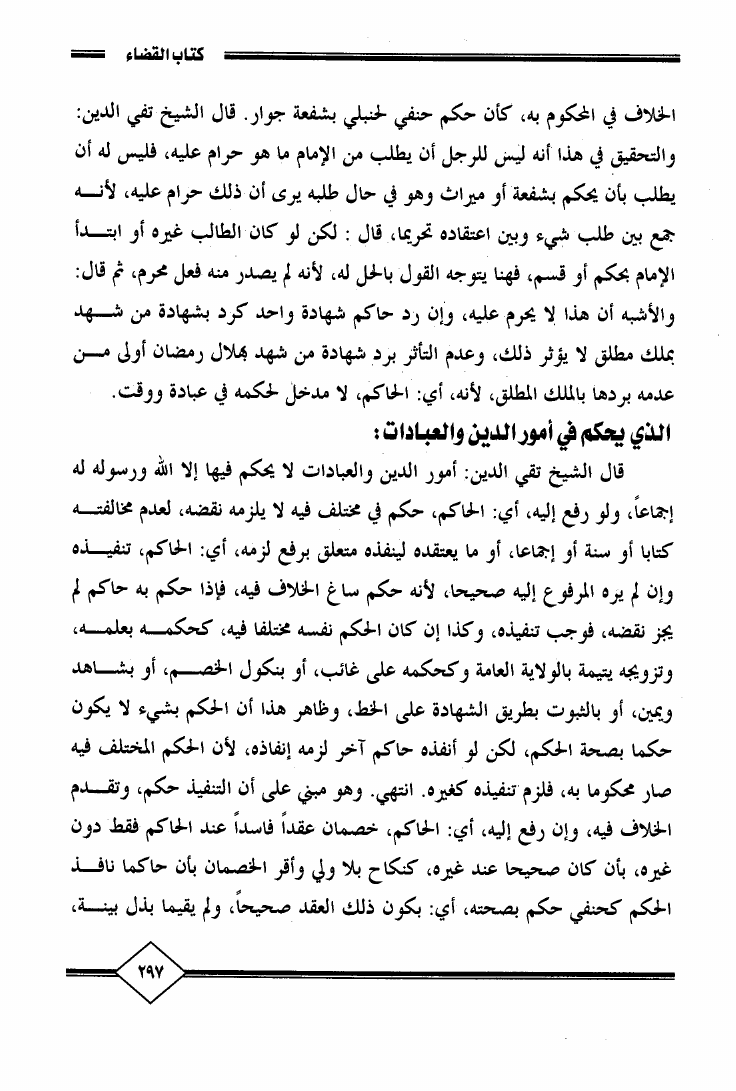 كتاب القضاء
الخلاف في المحكوم به، كأن حكم حنفي لحنبلي بشفعة جوار. قال الشيخ تفي الدين:
والتحقيق في هذا أنه ليس للرجل أن يطلب من الإمام ما هو حرام عليه، فليس له أن
يطلب بأن يحكم بشفعة أو ميراث وهو في حال طلبه يرى أن ذلك حرام عليه، لأنه
جمع بين طلب شيء وبين اعتقاده تحريما، قال : لكن لو كان الطالب غيره أو ابتدأ
الإمام بحكم أو قسم، فهنا يتوجه القول بالحل له، لأنه لم يصدر منه فعل محرم، ثم قال:
والأشبه أن هذا لا يحرم عليه، وإن رد حاكم شهادة واحد كرد بشهادة من شهد
بملك مطلق لا يؤثر ذلك، وعدم التأثر برد شهادة من شهد بهلال رمضان أولى من
عدمه بردها بالملك المطلق، لأنه، أي: الحاكم، لا مدخل لحكمه في عبادة ووقت.
الذي يحكم في أمور الدين والعبادات:
قال الشيخ تقي الدين: أمور الدين والعبادات لا يحكم فيها إلا الله ورسوله له
إجماعاً، ولو رفع إليه، أي: الحاكم، حكم في مختلف فيه لا يلزمه نقضه، لعدم مخالفته
كتابا أو سنة أو إجماعا، أو ما يعتقده لينفذه متعلق برفع لزمه، أي: الحاكم، تنفيذه
وإن لم يره المرفوع إليه صحيحا، لأنه حكم ساغ الخلاف فيه، فإذا حكم به حاكم لم
يجز نقضه، فوجب تنفيذه، وكذا إن كان الحكم نفسه مختلفا فيه، كحكمه بعلمه،
وتزويجه يتيمة بالولاية العامة وكحكمه على غائب، أو بنكول الخصم، أو بشاهد
ويمين، أو بالثبوت بطريق الشهادة على الخط، وظاهر هذا أن الحكم بشيء لا يكون
حكما بصحة الحكم، لكن لو أنفذه حاكم آخر لزمه إنفاذه، لأن الحكم المختلف فيه
صار محكوما به، فلزم تنفيذه كغيره. انتهي. وهو مبني على أن التنفيذ حكم، وتقدم
الخلاف فيه، وإن رفع إليه، أي: الحاكم، خصمان عقداً فاسداً عند الحاكم فقط دون
غيره، بأن كان صحيحا عند غيره، كنكاح بلا ولي وأقر الخصمان بأن حاكما نافذ
الحكم كحنفي حكم بصحته، أي: بكون ذلك العقد صحيحاً، ولم يقيما بذل بينة،
٢٩٧